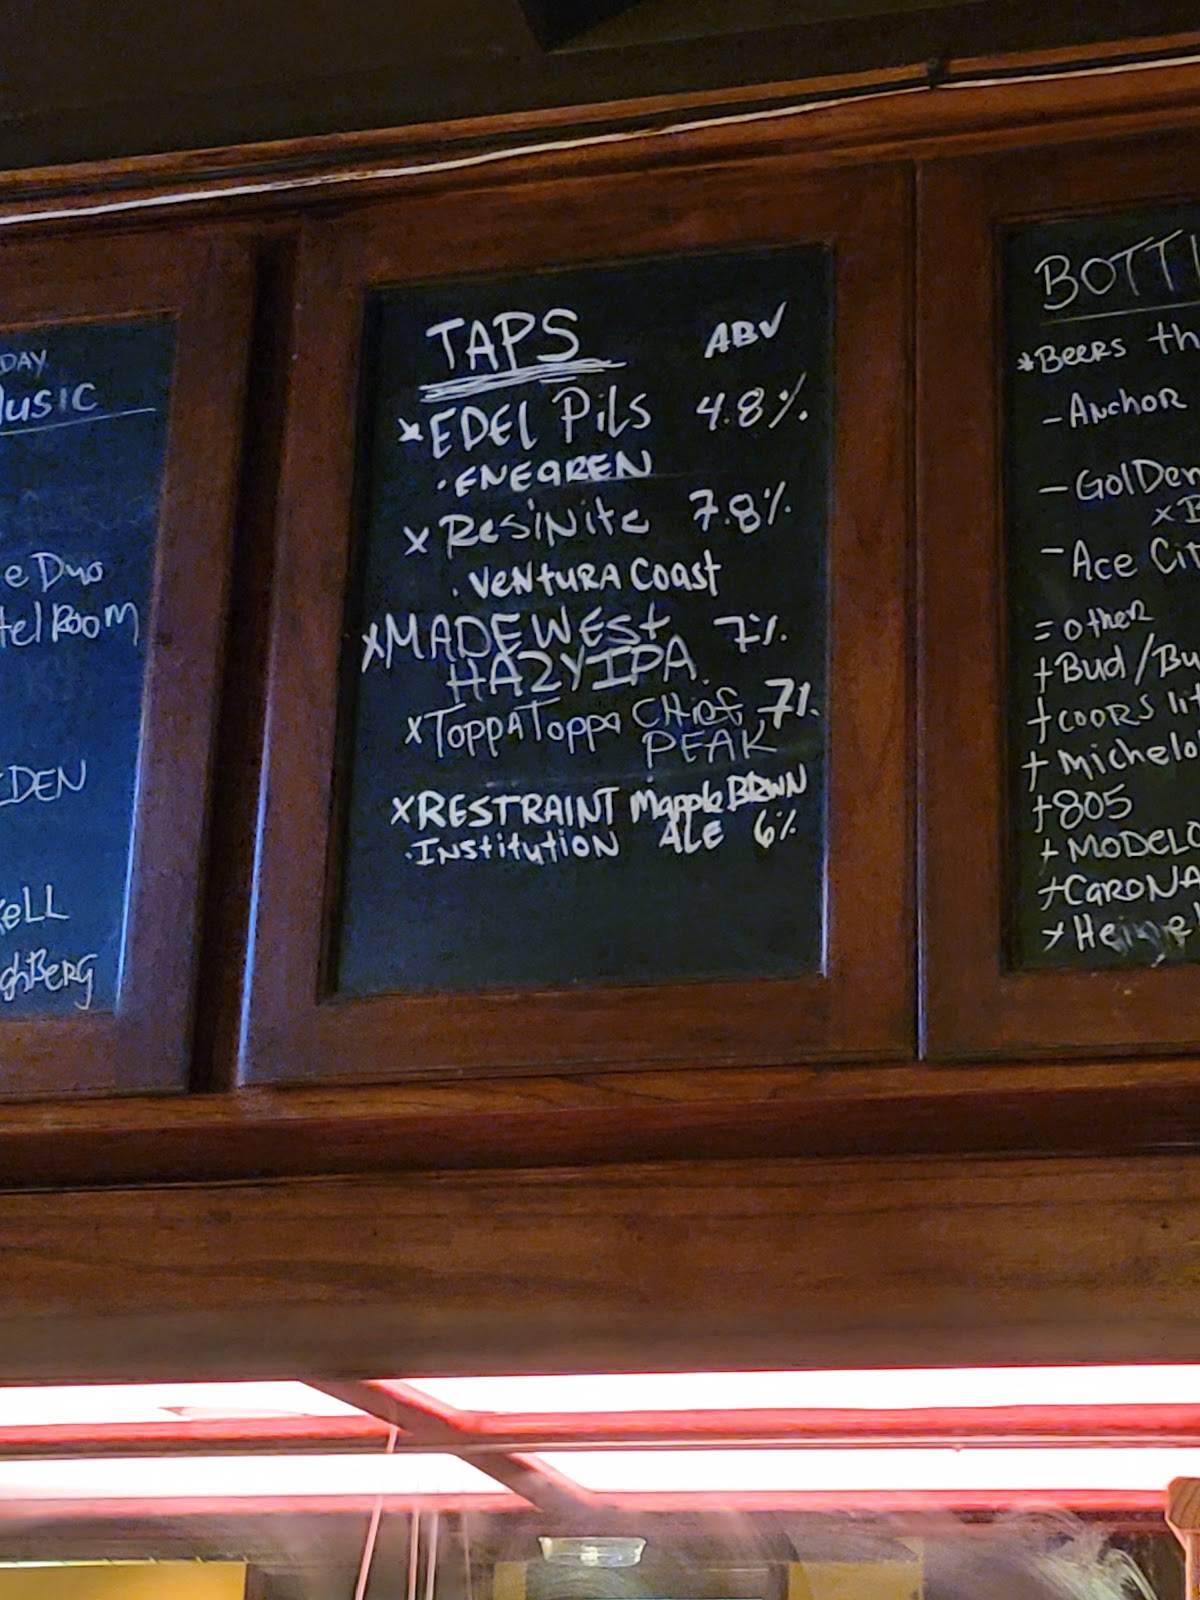 DAY
usic
e Duo
tel Room
EDEN
eLL
ghBerg
TAPS ABV
*EDEL Pils 4.8%
·ENEGREN
x Resinite 7.8%
. VENTURA Coast
xMADEWEST 7%
HAZY IPA.
xToppaToppa CHief 7%.
PEAK
xRESTRAINT Mapple BRWN
.Institution ALE 6%
BOTT
*Beers th
- Anchor
- GolDen
x
- Ace Cit
= other
+Bud/Bu
+coors li
+ michelo
+805
+ MODELO
+CaroNA